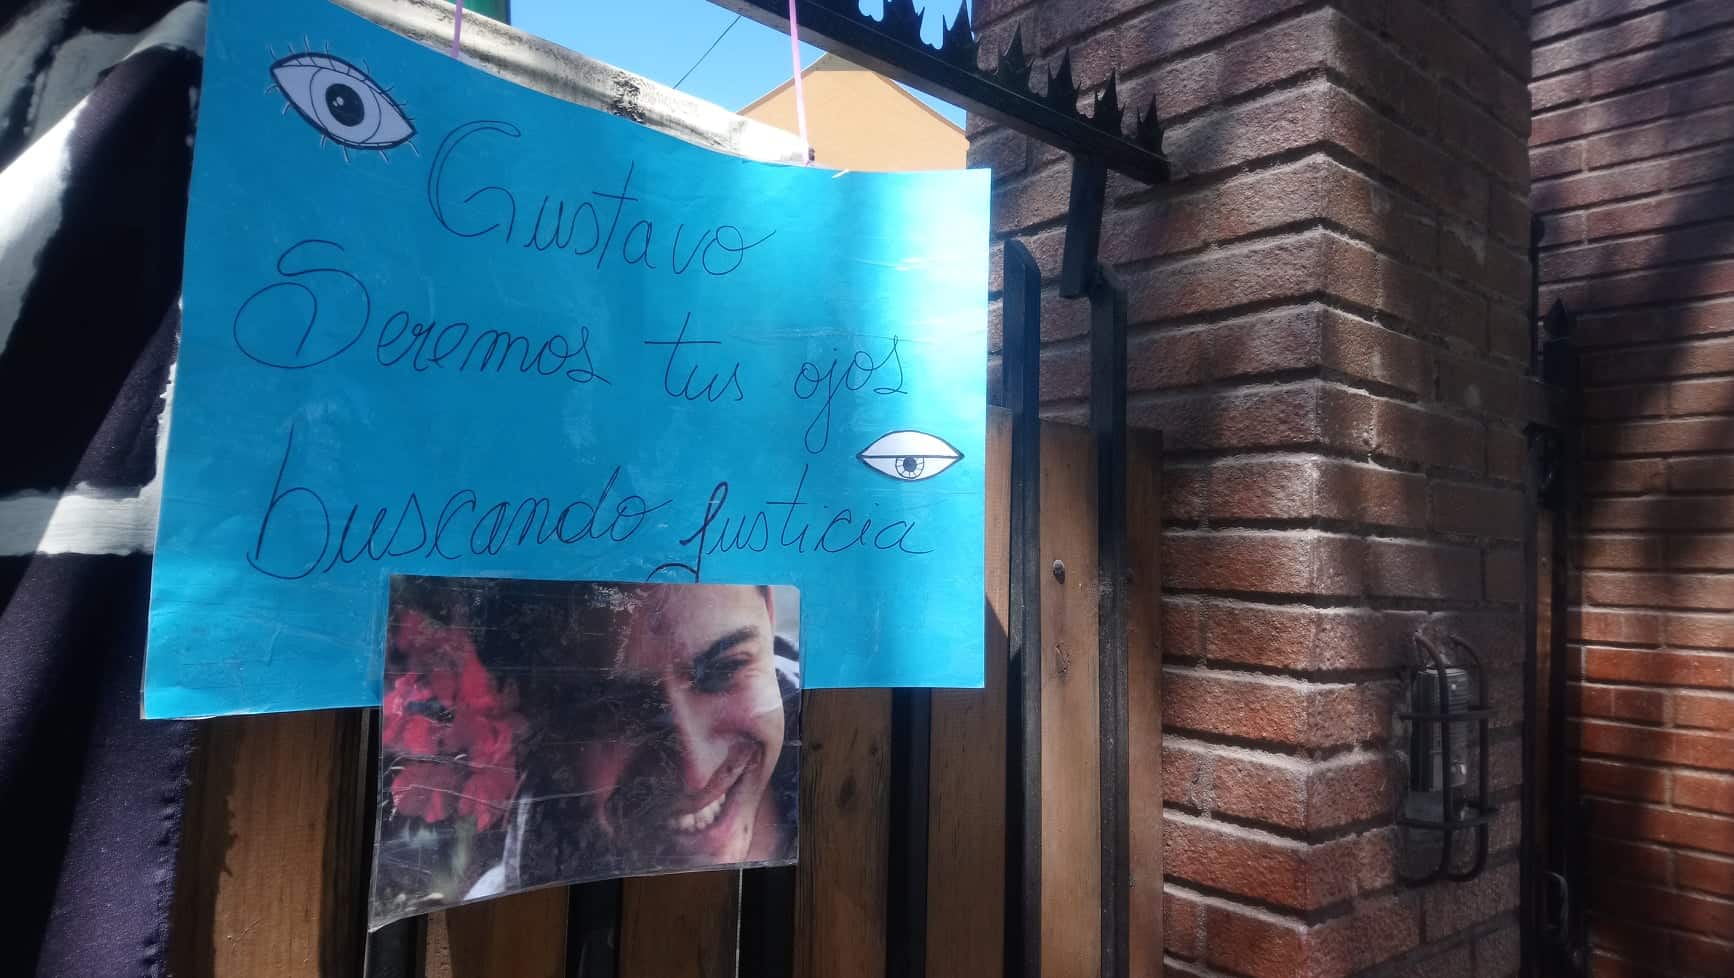 Gustavo
Seremos tus ojos
buscando justicia